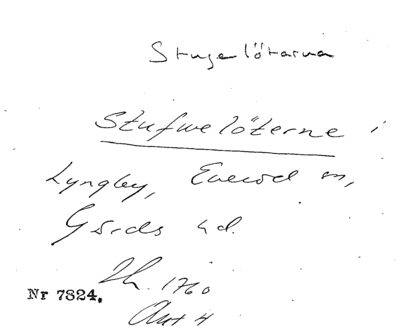 Stugelötarna
Stufwelöterne i
Lyngby, Everöd sn,
Gärds hd.
1760
Nr 7824.
Akt 4